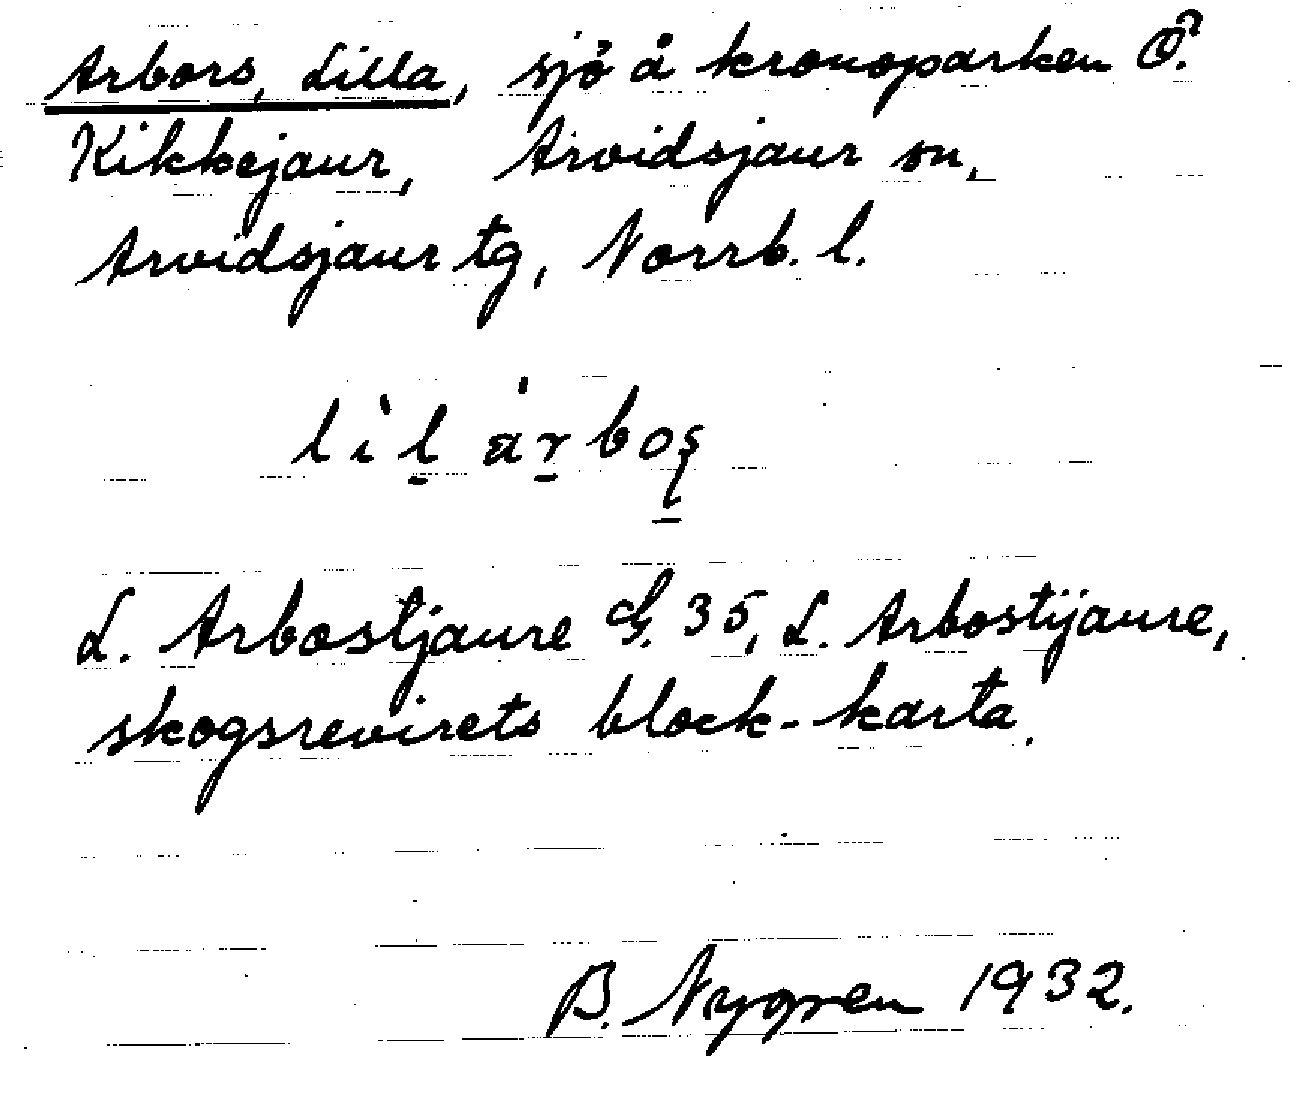 Arbors, Lilla, sjö å kronoparken Ö.
Kikkejaur, Arvidsjaur sn,
Arvidsjaur tg, Norrb. l.
lìl árboș
L. Arbostjaure G. 35, L. Arbostijaure,
skogsrevirets block-karta.
B. Nygren 1932.